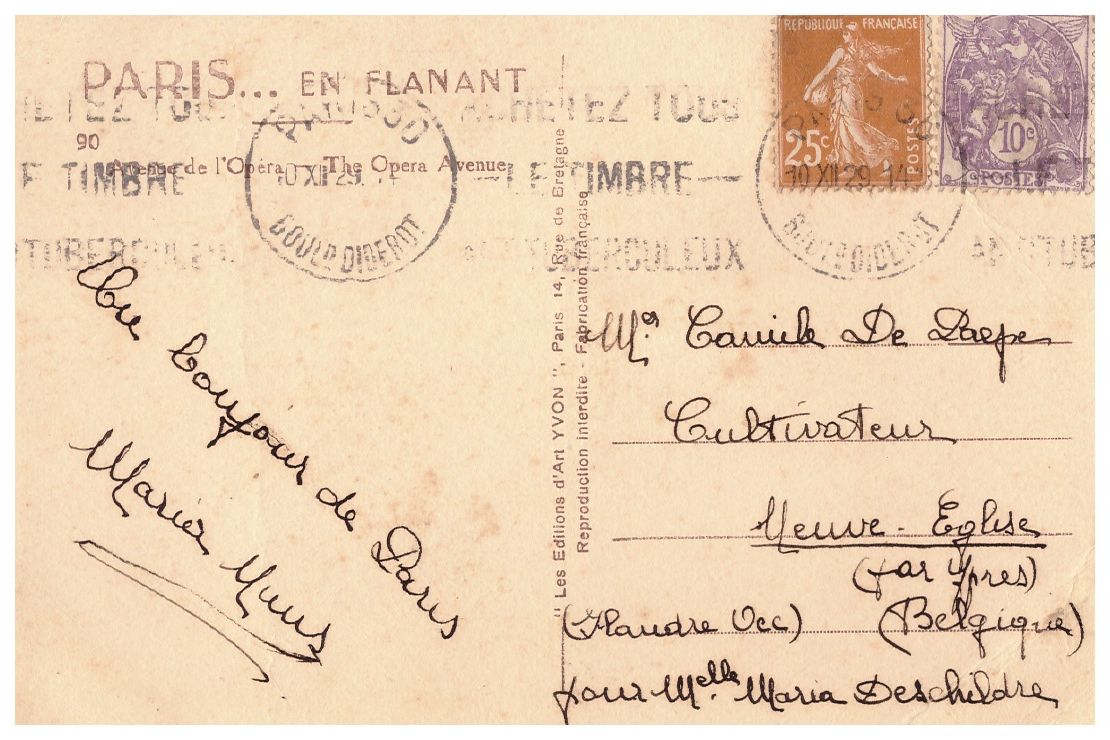 PARIS... EN FLANANT
90
Avenue de l'Opéra — The Opera Avenue
ACHETEZ TOUS
LE TIMBRE
ANTITUBERCULEUX
10 XII 29
BOUL D DIDEROT
RÉPUBLIQUE FRANÇAISE
25c
POSTES
10c
POSTES
bonjour de Paris
Maria
" Les Editions d'Art YVON ", Paris 14, Rue de Bretagne
Reproduction interdite - Fabrication française
Mr Camile De Paepe
Cultivateur
Neuve-Eglise
(par Ypres)
(Flandre Occ) (Belgique)
pour Melle Maria Deschildre